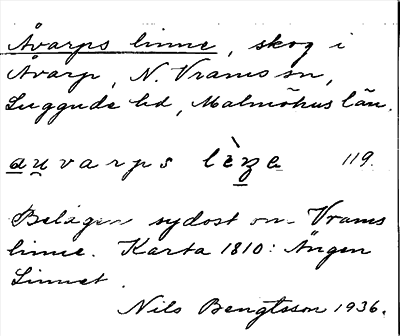 Åvarps linne, skog i
Åvarp, N. Vrams sn,
Luggude hd, Malmöhus län.
au̯varps lèʒe 119.
Belägen sydost om Vrams
linne. Karta 1810: Ängen
Linnet.
Nils Bengtsson 1936.